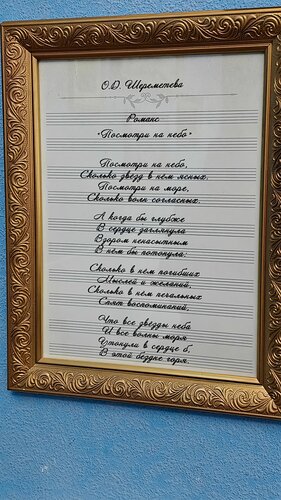 О.Д. Шереметева
Романс
"Посмотри на небо"
Посмотри на небо,
Сколько звёзд в нем ясных,
Посмотри на море,
Сколько волн согласных.
А когда бы глубже
В сердце заглянула
Взором ненасытным
В нем бы потонула:
Сколько в нем погибших
Мыслей и желаний,
Сколько в нём печальных
Спят воспоминаний,
Что все звёзды неба
И все волны моря
Утонули в сердце б,
В этой бездне горя.